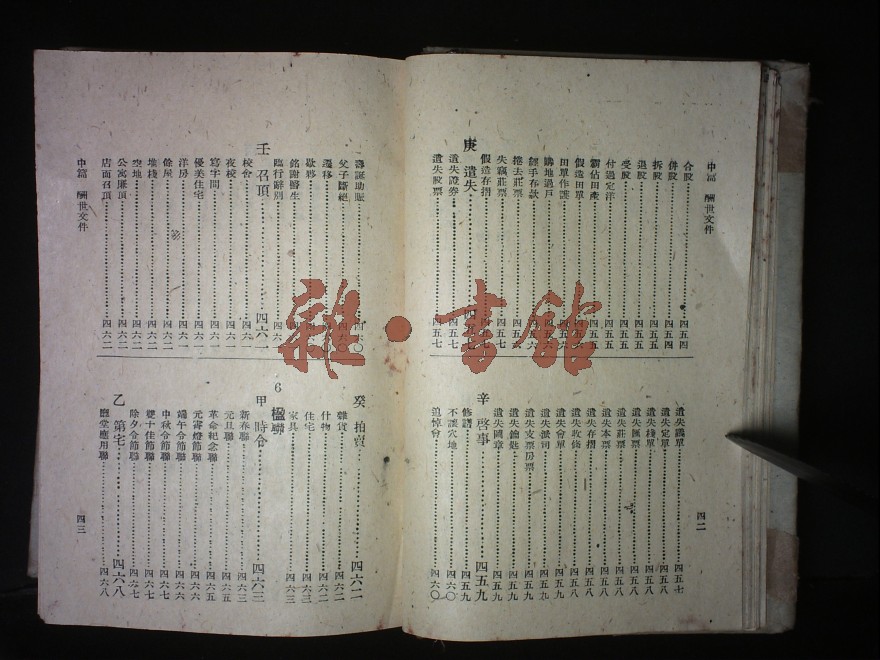 中篇 酬世文件
合股 四五四
併股 四五四
拆股 四五五
退股 四五五
受股 四五五
付過定洋 四五五
霸佔田產 四五五
假造田單 四五五
田單作證 四五六
購地過戶 四五六
經手存款 四五六
捲去莊票 四五六
失竊莊票 四五七
假造存摺 四五七
庚 遺失 四五七
遺失證券 四五七
遺失股票 四五七
遺失定單 四五八
遺失棧單 四五八
遺失匯票 四五八
遺失莊票 四五八
遺失本票 四五八
遺失存摺 四五八
遺失收條 四五八
遺失會單 四五九
遺失派司 四五九
遺失支票房票 四五九
遺失鑰匙 四五九
遺失圖章 四五九
辛 啓事 四五九
修譜 四五九
不讓穴地 四六〇
追悼會 四六〇
四二
壽誕助賑 四六〇
父子斷絕 四六〇
遷移
歇夥
銘謝醫生
臨行辭別
壬 召頂 四六一
校舍 四六一
夜校 四六一
寫字間 四六一
優美住宅 四六一
洋房 四六一
餘屋 四六二
堆棧 四六二
空地 四六二
公寓廉頂 四六二
店面召頂 四六二
中篇 酬世文件
癸 拍賣 四六二
雜貨 四六二
什物 四六二
住宅 四六三
家具 四六三
6 楹聯
甲 時令 四六三
新春聯 四六三
元旦聯 四六五
革命紀念聯 四六五
元宵燈節聯 四六六
端午令節聯 四六六
中秋令節聯 四六七
雙十佳節聯 四六七
除夕令節聯 四六七
乙 第宅 四六八
廳堂應用聯 四六八
四三
雜·書館